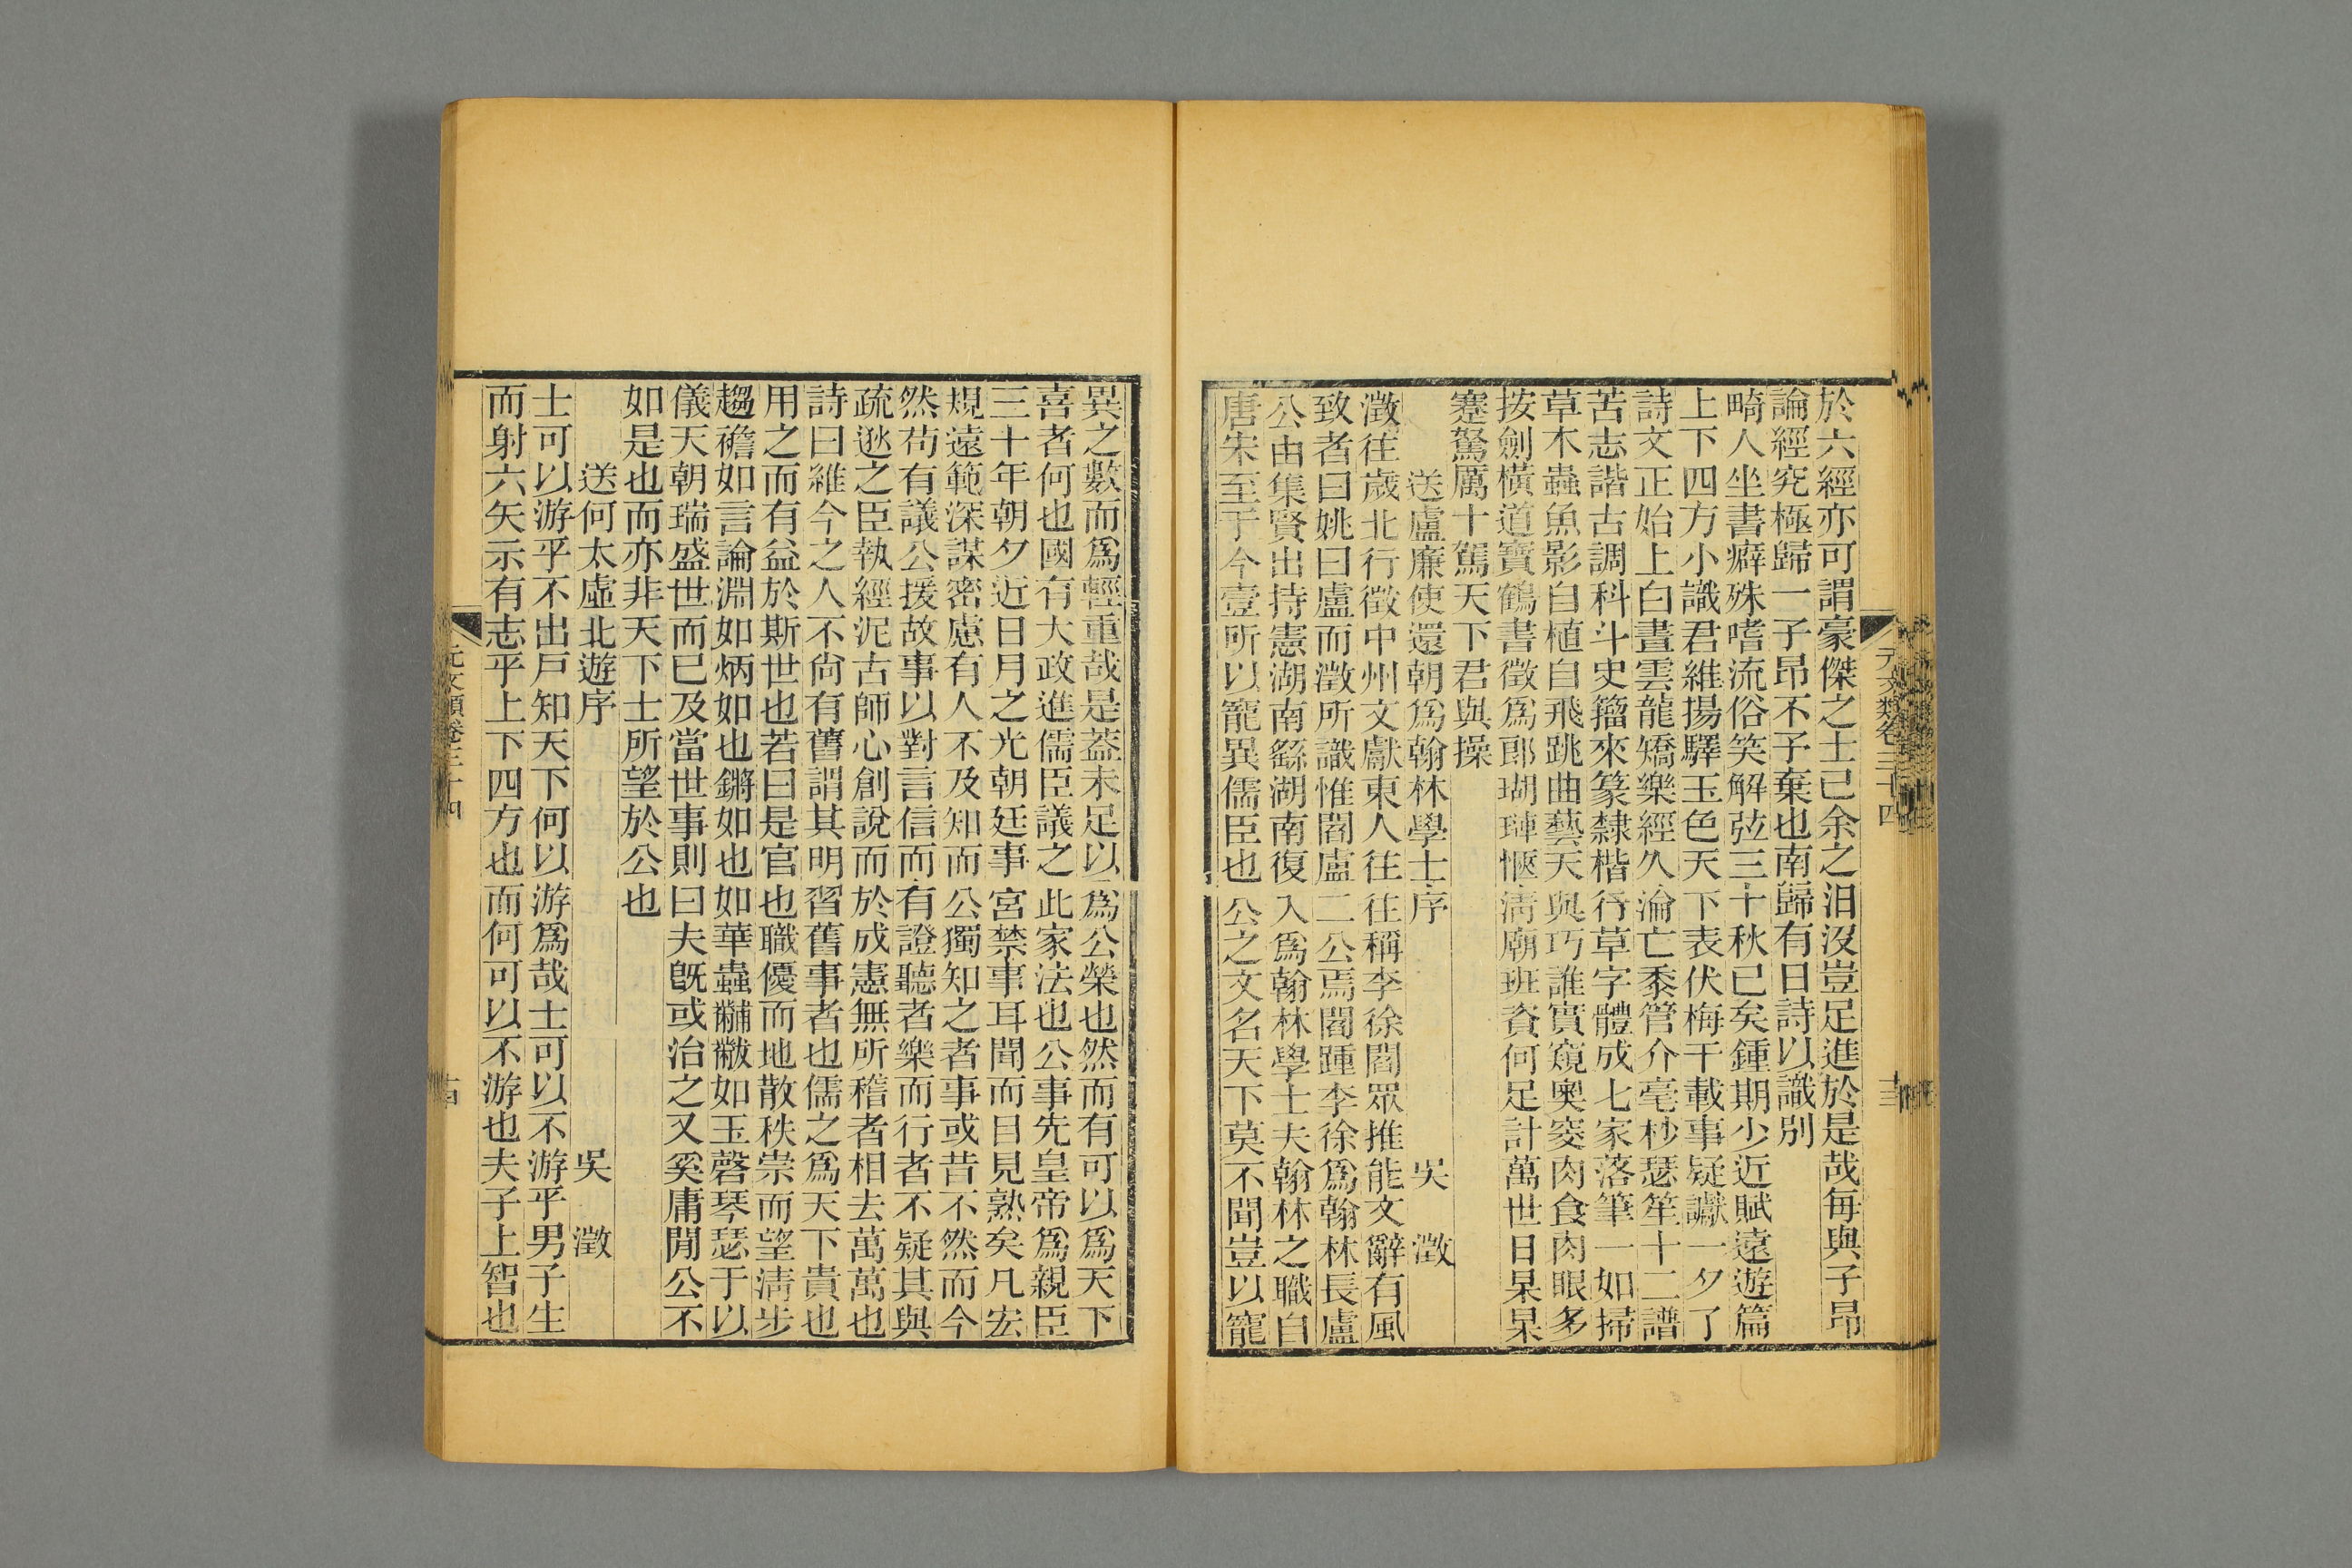 於六經亦可謂豪傑之士已余之汨沒豈足進於是哉每與子昂
論經究極歸一子昂不予棄也南歸有日詩以識別
畸人坐書癖殊嗜流俗笑解弦三十秋已矣鍾期少近賦遠遊篇
上下四方小識君維揚驛玉色天下表伏梅千載事疑讞一夕了
詩文正始上白晝雲龍矯樂經久淪亡黍管介毫杪瑟笙十二譜
苦志諧古調科斗史籀來篆隸楷行草字體成七家落筆一如掃
草木蟲魚影自植自飛跳曲藝天與巧誰實窺奧窔肉食肉眼多
按劍橫道寶鶴書徵爲郎瑚璉愜清廟班資何足計萬世日杲杲
蹇駑厲十駕天下君與操
送盧廉使還朝爲翰林學士序 吳 澂
澂往歲北行徵中州文獻東人往往稱李徐閻眾推能文辭有風
致者曰姚曰盧而澂所識惟閻盧二公焉閻踵李徐爲翰林長盧
公由集賢出持憲湖南繇湖南復入爲翰林學士夫翰林之職自
唐宋至于今壹所以寵異儒臣也公之文名天下莫不聞豈以寵
元文類卷三十四
異之數而爲輕重哉是葢未足以爲公榮也然而有可以爲天下
喜者何也國有大政進儒臣議之此家法也公事先皇帝爲親臣
三十年朝夕近日月之光朝廷事宮禁事耳聞而目見熟矣凡宏
規遠範深謀密慮有人不及知而公獨知之者事或昔不然而今
然苟有議公援故事以對言信而有證聽者樂而行者不疑其與
疏逖之臣執經泥古師心創說而於成憲無所稽者相去萬萬也
詩曰維今之人不尙有舊謂其明習舊事者也儒之爲天下貴也
用之而有益於斯世也若曰是官也職優而地散秩崇而望清步
趨襜如言論淵如炳如也鏘如也如華蟲黼黻如玉磬琴瑟于以
儀天朝瑞盛世而已及當世事則曰夫旣或治之又奚庸閒公不
如是也而亦非天下士所望於公也
送何太虛北遊序 吳 澂
士可以游乎不出戶知天下何以游爲哉士可以不游乎男子生
而射六矢示有志乎上下四方也而何可以不游也夫子上智也
元文類卷三十四